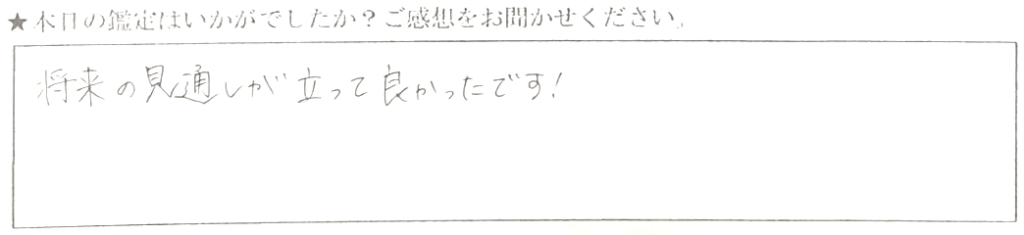 ★本日の鑑定はいかがでしたか？ご感想をお聞かせください。
将来の見通しが立って良かったです!